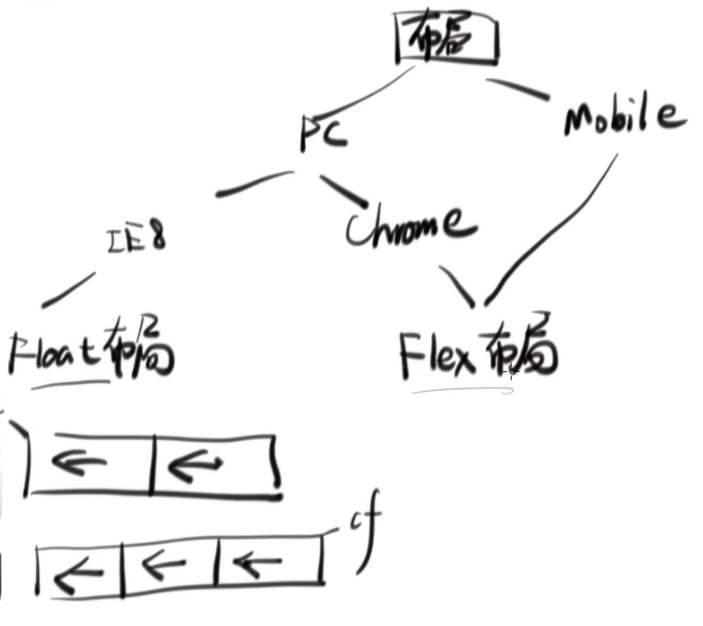 布局
PC
Mobile
IE8
Chrome
Float布局
Flex布局
cf